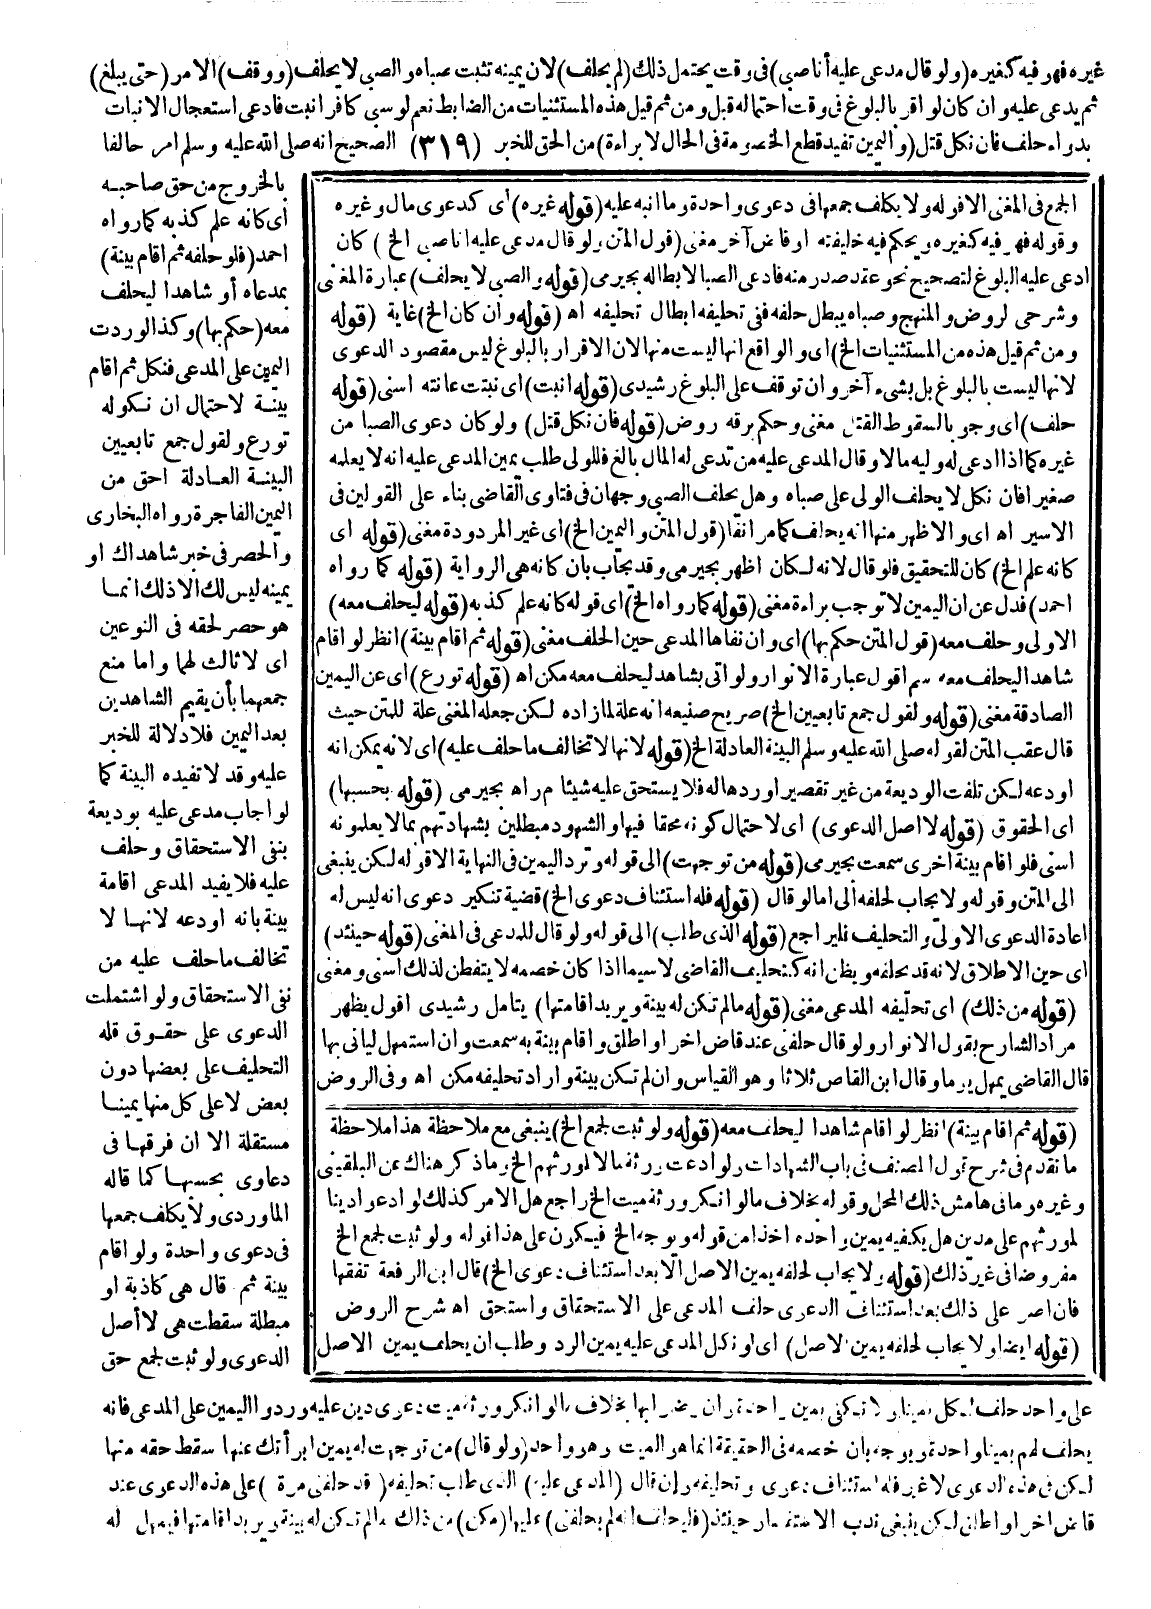 غيره فهو فيه كغيره (ولو قال مدعى عليه أنا صبي) في وقت يحتمل ذلك (لم يحلف) لان يمينه تثبت صباه والصبي لا يحلف (ووقف) الامر (حتى يبلغ)
ثم يدعى عليه وان كان لو اقر بالبلوغ في وقت احتماله قبل ومن ثم قيل هذه المستثنيات من الضابط نعم لو سبي كافر انبت فادعى استعجال الانبات
بدواء حلف فان نكل قتل (واليمين تفيد قطع الخصومة في الحال لا براءة) من الحق للخبر (٣١٩) الصحيح انه صلى الله عليه وسلم امر حالفا
بالخروج من حق صاحبه
أى كانه علم كذبه كما رواه
احمد (فلو حلفه ثم اقام بينة)
بمدعاه أو شاهدا ليحلف
معه (حكم بها) وكذا لو ردت
اليمين على المدعى فنكل ثم اقام
بينة لاحتمال ان نكوله
تورع ولقول جمع تابعيين
البينة العادلة احق من
اليمين الفاجرة رواه البخارى
والحصر فى خبر شاهداك او
يمينه ليس لك الا ذلك انما
هو حصر لحقه فى النوعين
اى لا ثالث لهما واما منع
جمعهما بأن يقيم الشاهدين
بعد اليمين فلا دلالة للخبر
عليه وقد لا تفيده البينة كما
لو اجاب مدعى عليه بوديعة
بنفى الاستحقاق وحلف
عليه فلا يفيد المدعى اقامة
بينة بانه اودعه لانها لا
تخالف ما حلف عليه من
نفى الاستحقاق ولو اشتملت
الدعوى على حقوق فله
التحليف على بعضها دون
بعض لا على كل منها يمينا
مستقلة الا ان فرقها فى
دعاوى بحسبها كما قاله
الماوردى ولا يكلف جمعها
فى دعوى واحدة ولو اقام
بينة ثم قال هى كاذبة او
مبطلة سقطت هى لا أصل
الدعوى ولو ثبت لجمع حق
الجمع فى المغنى الا قوله ولا يكلف جمعها فى دعوى واحدة وما انبه عليه (قوله غيره) أى كدعوى مال وغيره
وقوله فهو فيه كغيره ويحكم فيه خليفته او قاض آخر مغنى (قول المتن ولو قال مدعى عليه انا صبي الخ) كان
ادعى عليه البلوغ لتصحيح نحو عقد صدر منه فادعى الصبا لابطاله بجيرمى (قوله والصبي لا يحلف) عبارة المغنى
وشرحى لروض والمنهج وصباه يبطل حلفه ففى تحليفه ابطال تحليفه اه (قوله وأن كان الخ) غاية (قوله
ومن ثم قيل هذه من المستثنيات الخ) اى والواقع انها ليست منها لان الاقرار بالبلوغ ليس مقصود الدعوى
لانها ليست بالبلوغ بل بشىء آخر وان توقف على البلوغ رشيدى (قوله انبت) اى نبتت عانته اسنى (قوله
حلف) اى وجوبا لسقوط القتل مغنى وحكم برقه روض (قوله فان نكل قتل) ولو كان دعوى الصبا من
غيره كما اذا ادعى له وليه مالا وقال المدعى عليه من تدعى له المال بالغ فللولى طلب يمين المدعى عليه انه لا يعلمه
صغيرا فان نكل لا يحلف الولى على صباه وهل يحلف الصبى وجهان فى فتاوى القاضى بناء على القولين فى
الاسير اه اى والاظهر منهما انه يحلف كما مر انفا (قول المتن واليمين الخ) اى غير المردودة مغنى (قوله اى
كانه علم الخ) كان للتحقيق فلو قال لانه لكان اظهر بجيرمى وقد يجاب بان كانه هى الرواية (قوله كما رواه
احمد) فدل عن ان اليمين لا توجب براءة مغنى (قوله كما رواه الخ) اى قوله كانه علم كذبه (قوله ليحلف معه)
الاولى وحلف معه (قول المتن حكم بها) اى وان نفاها المدعى حين الحلف مغنى (قوله ثم اقام بينة) انظر لو اقام
شاهدا ليحلف معه سم اقول عبارة الانوار ولو اتى بشاهد ليحلف معه مكن اه (قوله تورع) اى عن اليمين
الصادقة مغنى (قوله ولقول جمع تابعيين الخ) صريح صنيعه انه علة لما زاده لكن جعله المغنى علة للمتن حيث
قال عقب المتن لقوله صلى الله عليه وسلم البينة العادلة الخ (قوله لانها لا تخالف ما حلف عليه) اى لانه يمكن انه
اودعه لكن تلفت الوديعة من غير تقصير او ردها له فلا يستحق عليه شيئا م ر اه بجيرمى (قوله بحسبها)
اى الحقوق (قوله لا اصل الدعوى) اى لاحتمال كونه محقا فيها والشهود مبطلين بشهادتهم بما لا يعلمونه
اسنى فلو اقام بينة اخرى سمعت بجيرمى (قوله من توجهت) الى قوله وترد اليمين فى النهاية الا قوله لكن ينبغى
الى المتن وقوله ولا يجاب لحلفه الى اما لو قال (قوله فله استئناف دعوى الخ) قضية تنكير دعوى انه ليس له
اعادة الدعوى الاولى والتحليف فليراجع (قوله الذى طلب) الى قوله ولو قال للمدعى فى المغنى (قوله حينئذ)
اى حين الاطلاق لانه قد يحلفه ويظن انه كتحليف القاضى لا سيما اذا كان خصمه لا يتفطن لذلك اسنى ومغنى
(قوله من ذلك) اى تحليفه المدعى مغنى (قوله ما لم تكن له بينة ويريد اقامتها) يتامل رشيدى اقول يظهر
مراد الشارح بقول الانوار ولو قال حلفنى عند قاض اخر او اطلق واقام بينة به سمعت وان استمهل لياتى بها
قال القاضى يمهل يوما وقال ابن القاص ثلاثا وهو القياس وان لم تكن بينة واراد تحليفه مكن اه وفى الروض
(قوله ثم اقام بينة) انظر لو اقام شاهدا ليحلف معه (قوله ولو ثبت لجمع الخ) ينبغى مع ملاحظة هذا ملاحظة
ما تقدم فى شرح قول المصنف فى باب الشهادات ولو ادعت ورثة مالا لمورثهم الخ وما ذكر هناك عن البلقينى
وغيره وما فى هامش ذلك المحل وقوله بخلاف ما لو انكر ورثة ميت الخ راجع هل الامر كذلك لو ادعوا دينا
لمورثهم على مدين هل يكفيه يمين واحده اخذا من قوله ويوجه الخ فيكون على هذا قوله ولو ثبت لجمع الخ
مفروضا فى غير ذلك (قوله ولا يجاب لحلفه يمين الاصل الا بعد استئناف دعوى الخ) قال ابن الرفعة تفقها
فان اصر على ذلك بعد استئناف الدعوى حلف المدعى على الاستحقاق واستحق اه شرح الروض
(قوله ايضا ولا يجاب لحلفه يمين الاصل) اى لو نكل المدعى عليه يمين الرد وطلب ان يحلف يمين الاصل
على واحد حلف لكل يمينا ولا تكفى يمين واحدة وان رضوا بها بخلاف ما لو انكر ورثة ميت دعوى دين عليه وردوا اليمين على المدعى فانه
يحلف لهم يمينا واحدة ويوجه بان خصمه فى الحقيقة انما هو الميت وهو واحد (ولو قال) من توجهت له يمين ابرأتك عنها سقط حقه منها
لكن فى هذه الدعوى لا غير فله استئناف دعوى وتحليفه وإن قال (المدعى عليه) الذى طلب تحليفه (قد حلفنى مرة) على هذه الدعوى عند
قاض اخر او اطلق لكن ينبغى ندب الاستفسار حينئذ (فليحلف انه لم يحلفنى) عليها (مكن) من ذلك ما لم تكن له بينة ويريد اقامتها فيمهل له